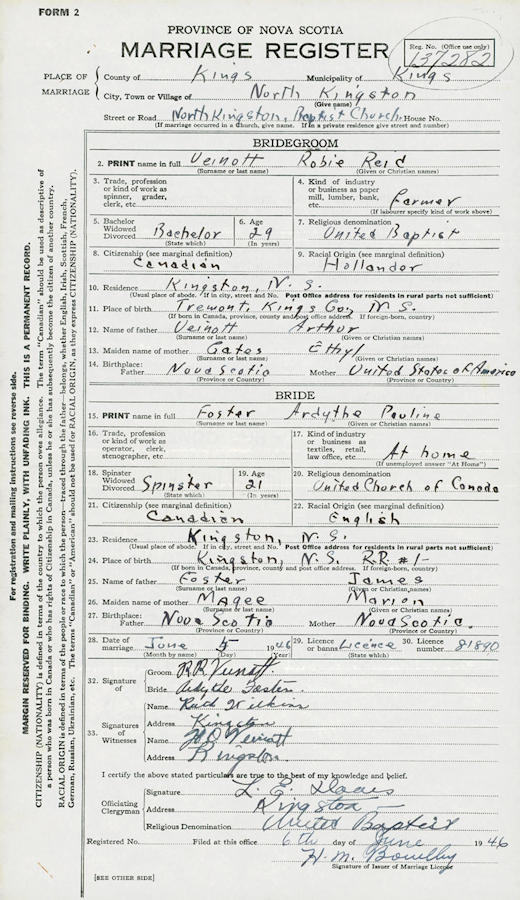 FORM 2
PROVINCE OF NOVA SCOTIA
MARRIAGE REGISTER
Reg. No. (Office use only)
137282
PLACE OF MARRIAGE
County of Kings Municipality of Kings
City, Town or Village of North Kingston
(Give name)
Street or Road North Kingston, Baptist Church House No.
(If marriage occurred in a church, give name. If in a private residence give street and number)
BRIDEGROOM
2. PRINT name in full Veinott Robie Reid
(Surname or last name) (Given or Christian names)
3. Trade, profession or kind of work as spinner, grader, clerk, etc.
4. Kind of industry or business as paper mill, lumber, bank, etc. Farmer
(If labourer specify kind of work above)
5. Bachelor Widowed Divorced Bachelor
(State which)
6. Age 29
(In years)
7. Religious denomination
United Baptist
8. Citizenship (see marginal definition)
Canadian
9. Racial Origin (see marginal definition)
Hollander
10. Residence Kingston, N. S.
(Usual place of abode. If in city, street and No. Post Office address for residents in rural parts not sufficient)
11. Place of birth Tremont, Kings Co., N. S.
(If born in Canada, province, county and post office address. If foreign-born, country)
12. Name of father Veinott Arthur
(Surname or last name) (Given or Christian names)
13. Maiden name of mother Gates Ethyl
(Surname or last name) (Given or Christian names)
14. Birthplace: Father Nova Scotia Mother United States of America
(Province or Country) (Province or Country)
BRIDE
15. PRINT name in full Foster Ardythe Pauline
(Surname or last name) (Given or Christian names)
16. Trade, profession or kind of work as operator, clerk, stenographer, etc
17. Kind of industry or business as textiles, retail, law office, etc At home
(If unemployed answer "At Home")
18. Spinster Widowed Divorced Spinster
(State which)
19. Age 21
(In years)
20. Religious denomination
United Church of Canada
21. Citizenship (see marginal definition)
Canadian
22. Racial Origin (see marginal definition)
English
23. Residence Kingston, N. S.
(Usual place of abode. If in city, street and No. Post Office address for residents in rural parts not sufficient)
24. Place of birth Kingston, N. S. R.R. #1-
(If born in Canada, province, county and post office address. If foreign-born, country)
25. Name of father Foster James
(Surname or last name) (Given or Christian names)
26. Maiden name of mother Magee Marion
(Surname or last name) (Given or Christian names)
27. Birthplace: Father Nova Scotia Mother Nova Scotia.
(Province or Country) (Province or Country)
28. Date of marriage June 5 1946
(Month by name) (Day) (Year)
29. Licence or banns Licence
(State which)
30. Licence number 81890
32. Signature of
Groom R.R. Veinott
Bride Ardythe Foster
33. Signatures of Witnesses
Name Ruth Wilkins
Address Kingston
Name Veinott
Address Kingston
I certify the above stated particulars are true to the best of my knowledge and belief.
Officiating Clergyman
Signature L. E.
Address Kingston
Religious Denomination United Baptist
Registered No. Filed at this office 6th day of June 1946
H. M. Bowlby
Signature of Issuer of Marriage Licence
[SEE OTHER SIDE]
For registration and mailing instructions see reverse side.
MARGIN RESERVED FOR BINDING. WRITE PLAINLY, WITH UNFADING INK. THIS IS A PERMANENT RECORD.
CITIZENSHIP (NATIONALITY) is defined in terms of the country to which the person owes allegiance. The term "Canadian" should be used as descriptive of
a person who was born in Canada or who has rights of Citizenship in Canada, unless he or she has subsequently become the citizen of another country.
RACIAL ORIGIN is defined in terms of the people or race to which the person—traced through the father—belongs, whether English, Irish, Scottish, French,
German, Russian, Ukrainian, etc. The terms "Canadian" or "American" should not be used for RACIAL ORIGIN, as they express CITIZENSHIP (NATIONALITY).